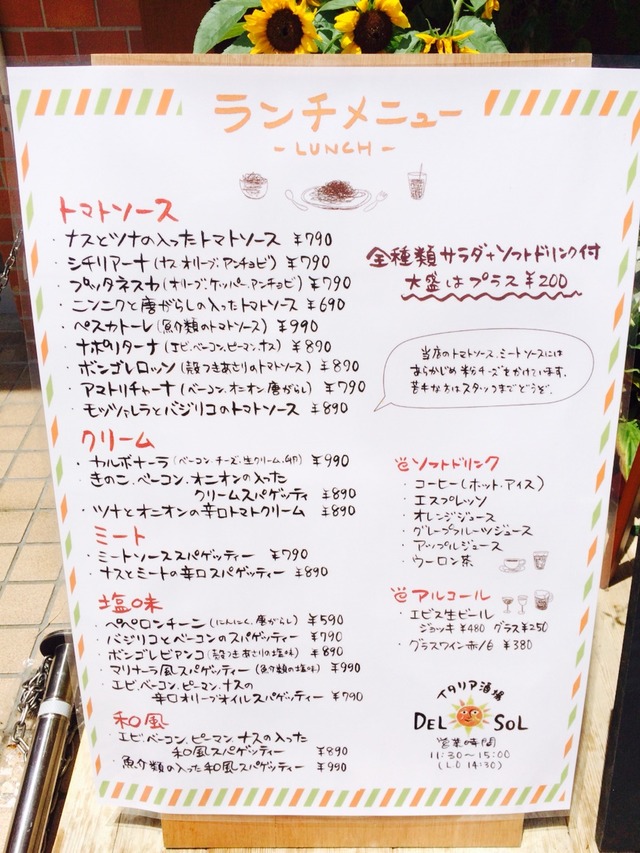 ランチメニュー
- LUNCH -
トマトソース
・ナスとツナの入ったトマトソース ¥790
・シチリアーナ(ナス オリーブ.アンチョビ) ¥790
・プッタネスカ(オリーブ.ケッパー.アンチョビ) ¥790
・ニンニクと唐がらしの入ったトマトソース ¥690
・ペスカトーレ(魚介類のトマトソース) ¥990
・ナポリターナ(エビ.ベーコン.ピーマン.ナス) ¥890
・ボンゴレロッソ(殻つきあさりのトマトソース) ¥890
・アマトリチャーナ(ベーコン.オニオン 唐がらし) ¥790
・モッツァレラとバジリコのトマトソース ¥890
クリーム
・カルボナーラ(ベーコン.チーズ.生クリーム.卵) ¥990
・きのこ.ベーコン.オニオンの入った
クリームスパゲッティ ¥890
・ツナとオニオンの辛口トマトクリーム ¥890
ミート
・ミートソーススパゲッティー ¥790
・ナスとミートの辛口スパゲッティー ¥890
塩味
・ペペロンチーノ(にんにく.唐がらし) ¥590
・バジリコとベーコンのスパゲッティー ¥790
・ボンゴレビアンコ(殻つきあさりの塩味) ¥890
・マリナーラ風スパゲッティー(魚介類の塩味) ¥990
・エビ.ベーコン.ピーマン.ナスの
辛口オリーブオイルスパゲッティー ¥790
和風
・エビ.ベーコン.ピーマン.ナスの入った
和風スパゲッティー ¥890
・魚介類の入った和風スパゲッティー ¥990
全種類サラダ+ソフトドリンク付
大盛はプラス¥200
当店のトマトソース.ミートソースには
あらかじめ粉チーズをかけています。
苦手な方はスタッフまでどうぞ。
ソフトドリンク
・コーヒー(ホット・アイス)
・エスプレッソ
・オレンジジュース
・グレープフルーツジュース
・アップルジュース
・ウーロン茶
アルコール
・エビス生ビール
ジョッキ¥480 グラス¥250
・グラスワイン赤/白 ¥380
イタリア酒場
DEL SOL
営業時間
11:30~15:00
(L.O 14:30)